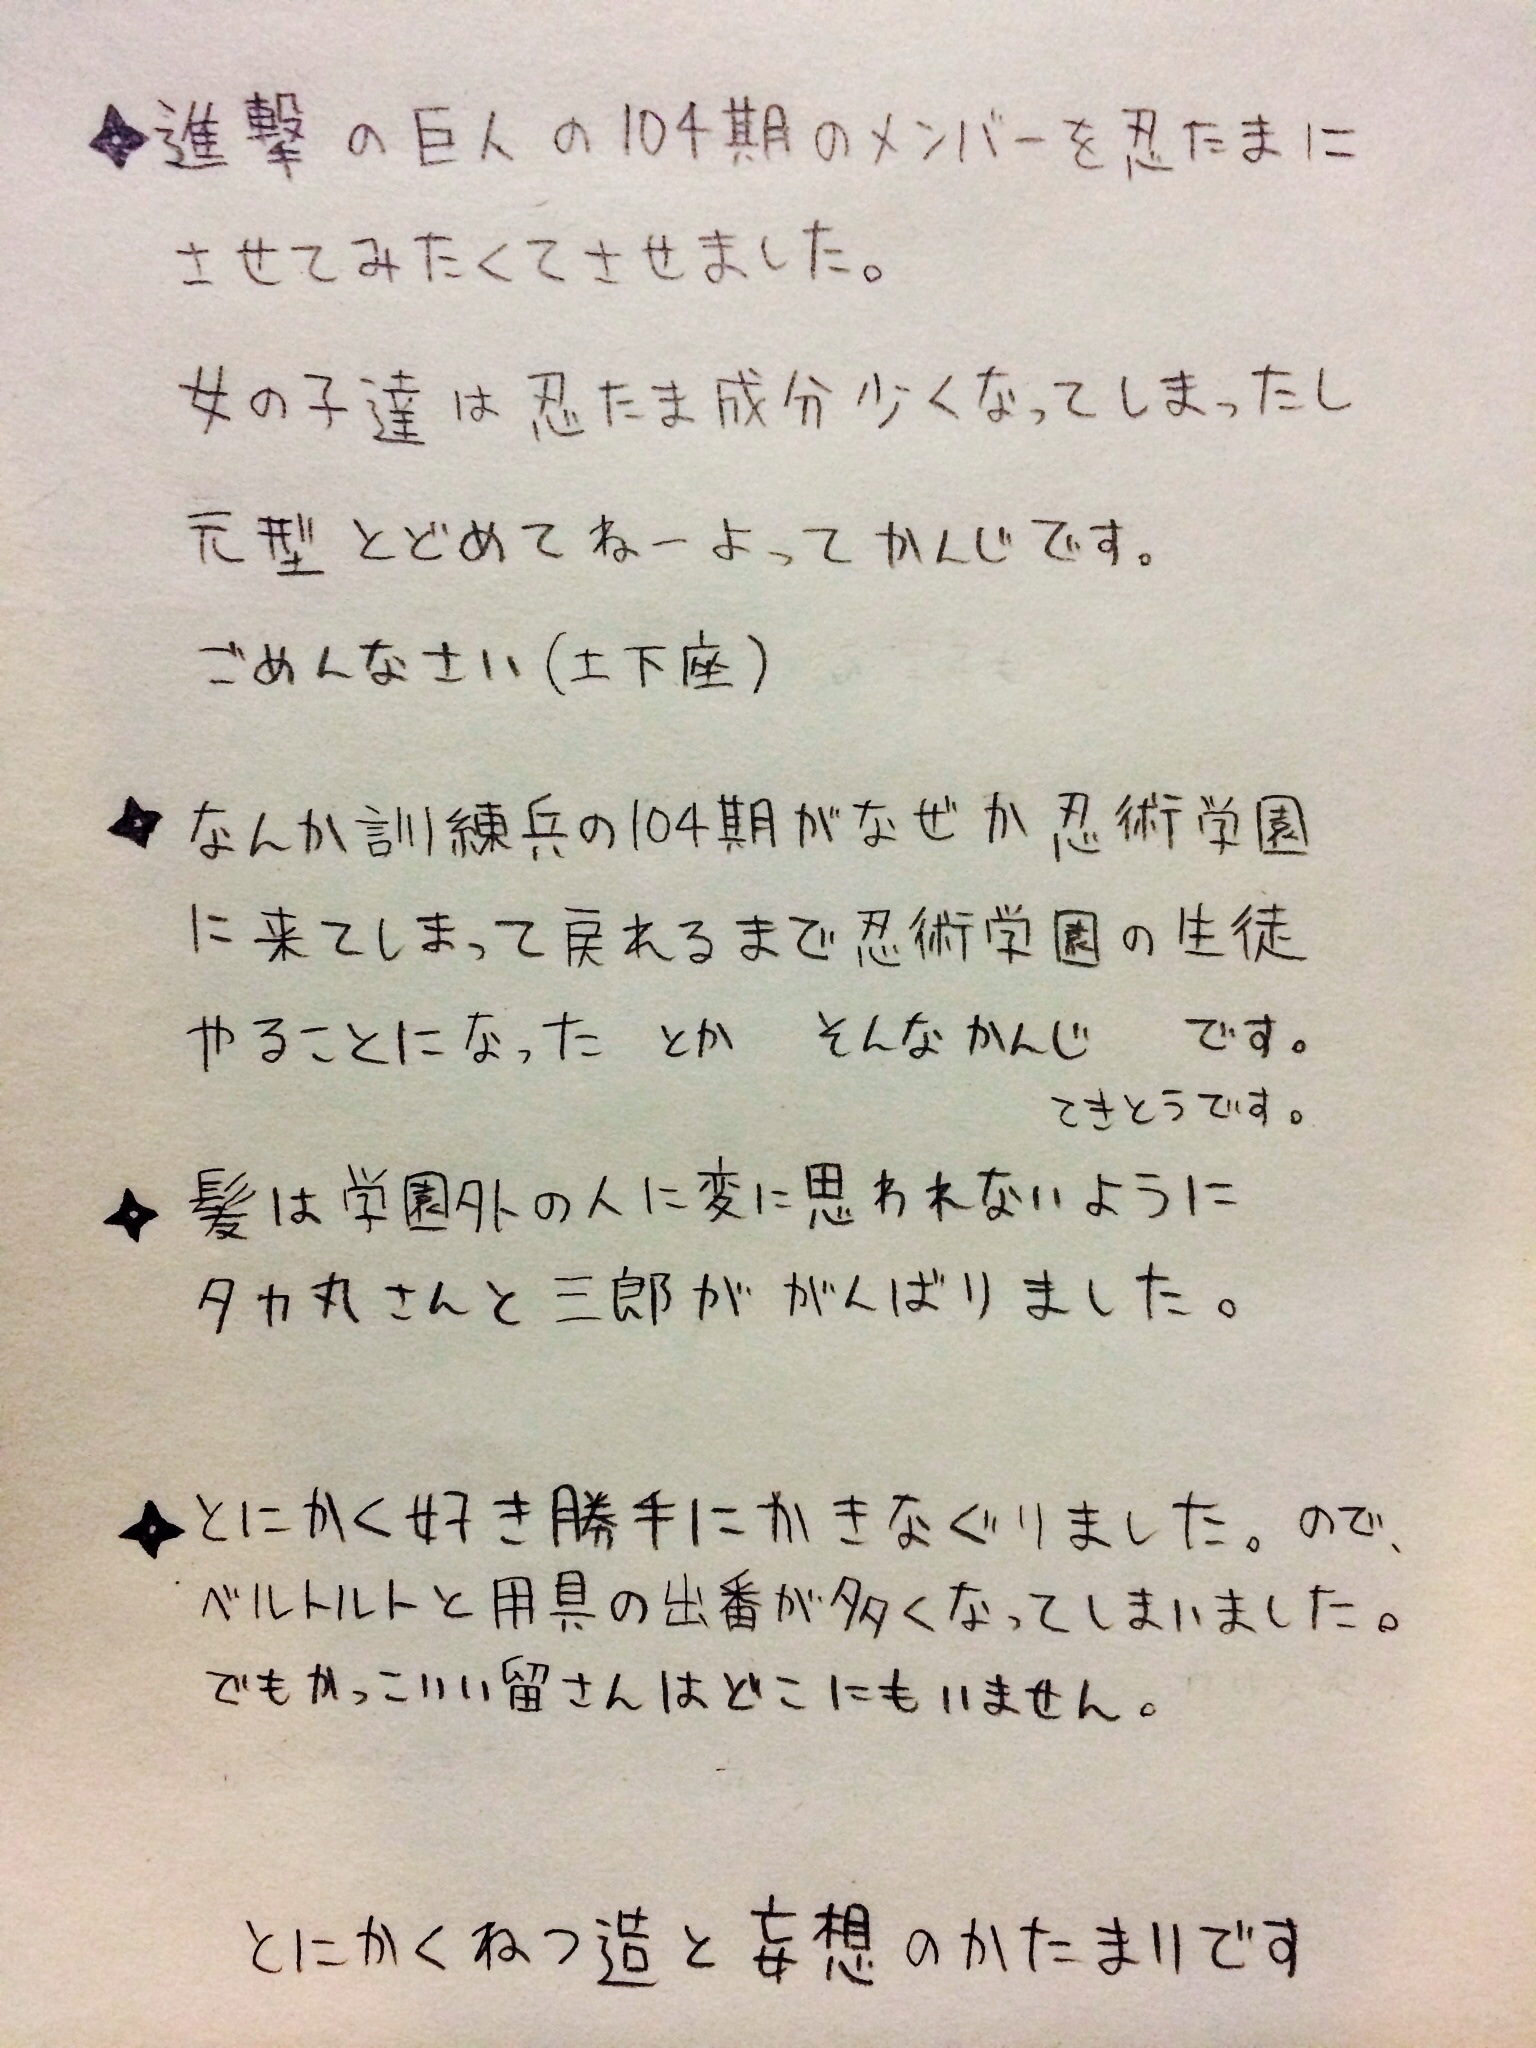 進撃の巨人の104期のメンバーを忍たまに
させてみたくてさせました。
女の子達は忍たま成分少くなってしまったし
元型とどめてねーよってかんじです。
ごめんなさい(土下座)
なんか訓練兵の104期がなぜか忍術学園
に来てしまって戻れるまで忍術学園の生徒
やることになった とか そんなかんじ です。
てきとうです。
髪は学園外の人に変に思われないように
タカ丸さんと三郎ががんばりました。
とにかく好き勝手にかきなぐりました。ので、
ベルトルトと用具の出番が多くなってしまいました。
でもかっこいい留さんはどこにもいません。
とにかくねつ造と妄想のかたまりです